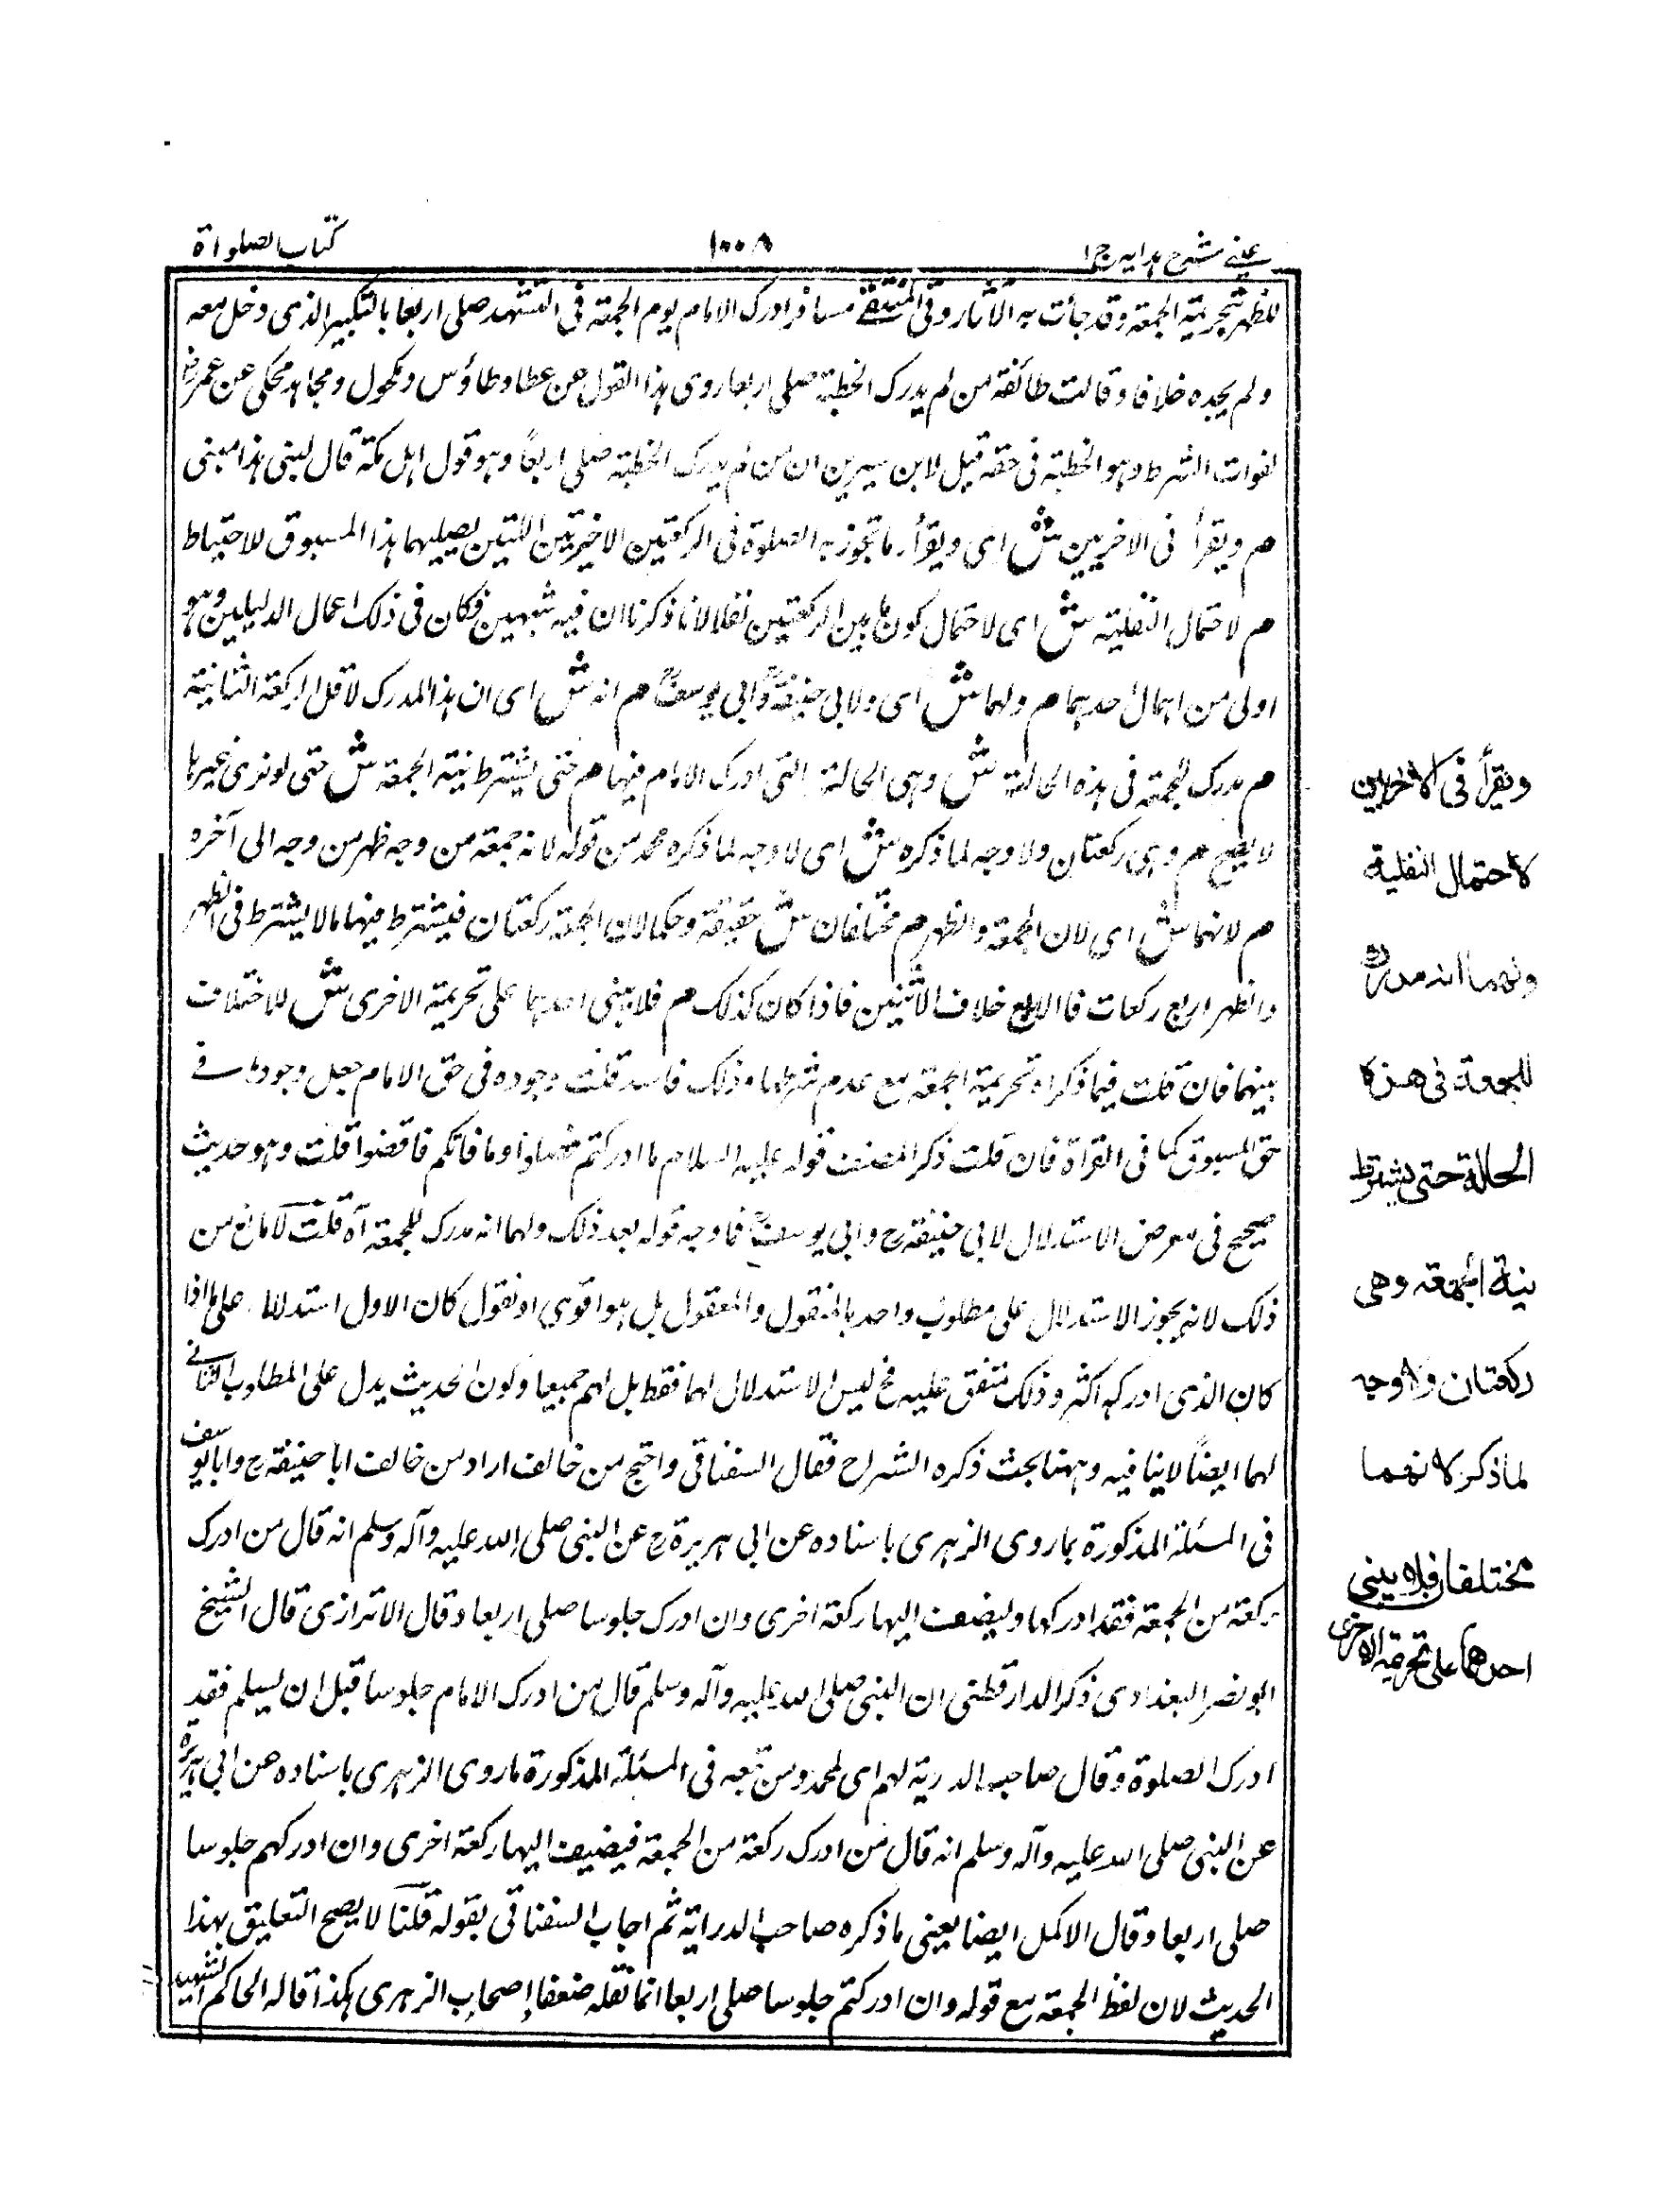 عينى شرح هدايه ج ١
١٠٠٨
كتاب الصلواة
للظهر تحريمة الجمعة وقد جأت به الآثار وفى المنتقى مسافر ادرك الامام يوم الجمعة فى التشهد صلى اربعا بالتكبير الذى دخل معه
ولم يجده خلافا وقالت طائفة من لم يدرك الخطبة صلى اربعا روى هذا القول عن عطا وطاؤس ومكحول ومجاهد محكى عن عمر رض
لفوات الشرط وهو الخطبة فى حقه قيل لابن سيرين ان من لم يدرك الخطبة صلى اربعا وهو قول اهل مكة قال ليبنى هذا مبنى
م ويقرأ فى الاخريين ش اى ويقرأ ما تجوز به الصلوة فى الركعتين الاخيرتين اللتين يصليهما هذا المسبوق للاحتياط
م لاحتمال النفلية ش اى لاحتمال كون هاتين الركعتين نفلا لانا ذكرنا ان فيه شبهين فكان فى ذلك اعمال الدليلين وهو
اولى من اهمال احدهما م ولهما ش اى ولابى حنيفة وابى يوسف م انه ش اى ان هذا المدرك لاقل الركعة الثانية
م مدرك للجمعة فى هذه الحالة ش وهى الحالة التى ادرك الامام فيها م حتى يشترط نية الجمعة ش حتى لو نوى غيرها
لا يصح م وهى ركعتان ولا وجه لما ذكره ش اى لا وجه لما ذكره محمد من قوله لانه جمعة من وجه ظهر من وجه الى آخره
م لانهما ش اى لان الجمعة والظهر م مختلفان ش حقيقة وحكما لان الجمعة ركعتان فيشترط فيها ما لا يشترط فى الظهر
والظهر اربع ركعات فالاربع خلاف الاثنين فاذا كان كذلك م فلا يبنى احدهما على تحريمة الاخرى ش للاختلاف
بينهما فان قلت فيما ذكراه تحريمة الجمعة مع عدم شرطها وذلك فاسد قلت وجوده فى حق الامام جعل وجودا فى
حق المسبوق كما فى القرأة فان قلت ذكر المصنف قوله عليه السلام ما ادركتم فصلوا وما فاتكم فاقضوا قلت وهو حديث
صحيح فى معرض الاستدلال لابى حنيفة رح وابى يوسف فما وجه قوله بعد ذلك ولهما انه مدرك للجمعة آه قلت لا مانع من
ذلك لانه يجوز الاستدلال على مطلوب واحد بالمنقول والمعقول بل هو اقوى او نقول كان الاول استدلالا على ما اذا
كان الذى ادركه اكثر وذلك متفق عليه فح ليس الاستدلال لهما فقط بل لهم جميعا وكون الحديث يدل على المطلوب الثانى
لهما ايضا لا ينافيه وههنا بحث ذكره الشراح فقال السغناقى واحتج من خالف اراد من خالف ابا حنيفة رح وابا يوسف
فى المسئلة المذكورة بما روى الزهرى باسناده عن ابى هريرة رض عن النبى صلى الله عليه وآله وسلم انه قال من ادرك
ركعة من الجمعة فقد ادركها وليضف اليها ركعة اخرى وان ادرك جلوسا صلى اربعا وقال الاترازى قال الشيخ
ابو نصر البغدادى ذكر الدارقطنى ان النبى صلى الله عليه وآله وسلم قال من ادرك الامام جلوسا قبل ان يسلم فقد
ادرك الصلوة وقال صاحب الدراية لهم اى لمحمد ومن تبعه فى المسئلة المذكورة ما روى الزهرى باسناده عن ابى هريرة
عن النبى صلى الله عليه وآله وسلم انه قال من ادرك ركعة من الجمعة فيضيف اليها ركعة اخرى وان ادركهم جلوسا
صلى اربعا وقال الاكمل ايضا يعنى ما ذكره صاحب الدراية ثم اجاب السغناقى بقوله قلنا لا يصح التعليق بهذا
الحديث لان لفظ الجمعة مع قوله وان ادركتم جلوسا صلى اربعا انما نقله ضعفا اصحاب الزهرى هكذا قاله الحاكم الشهيد
ويقرأ فى الاخريين
لاحتمال النفلية
ولهما انه مدرك
للجمعة فى هذه
الحالة حتى يشترط
نية الجمعة وهى
ركعتان ولا وجه
لما ذكر لانهما
مختلفان فلا يبنى
احدهما على تحريمة الاخرى